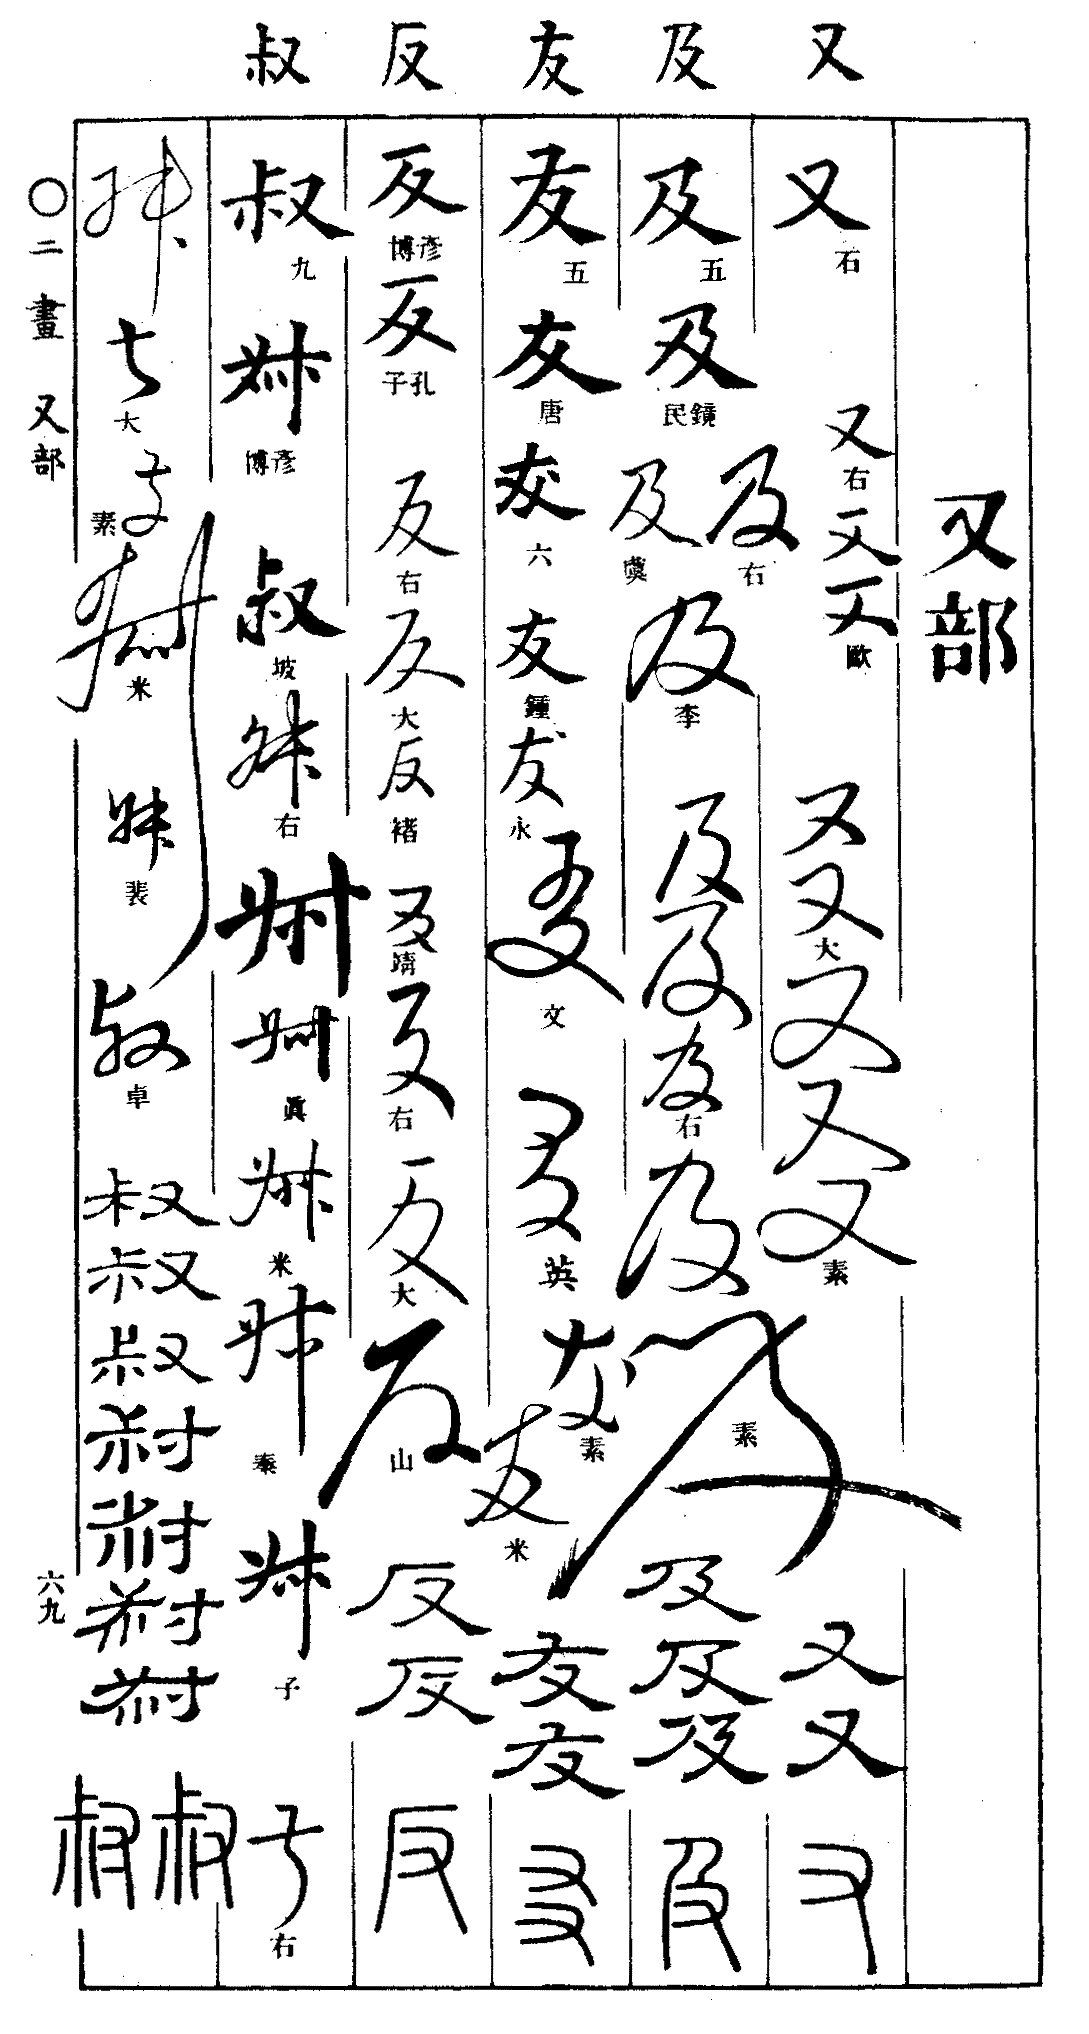 又 及 友 反 叔
又部
又
右
又
右
又
又
歐
又
又
大
又
又
又
素
又
又
又
及
五
及
鏡民
及
右
及
虞
及
李
及
及
及
右
及
及
素
及
及
及
及
友
五
友
唐
友
六
友
鍾
友
永
友
文
友
英
友
素
友
米
友
友
友
反
彦博
反
孔子
反
右
反
大
反
褚
反
靖
反
右
反
大
反
山
反
反
反
叔
九
叔
彦博
叔
坡
叔
右
叔
叔
眞
叔
米
叔
叔
子
叔
右
叔
叔
大
叔
素
叔
米
叔
裴
叔
卓
叔
叔
叔
叔
叔
叔
叔
叔
叔
〇二畫 又部
六九